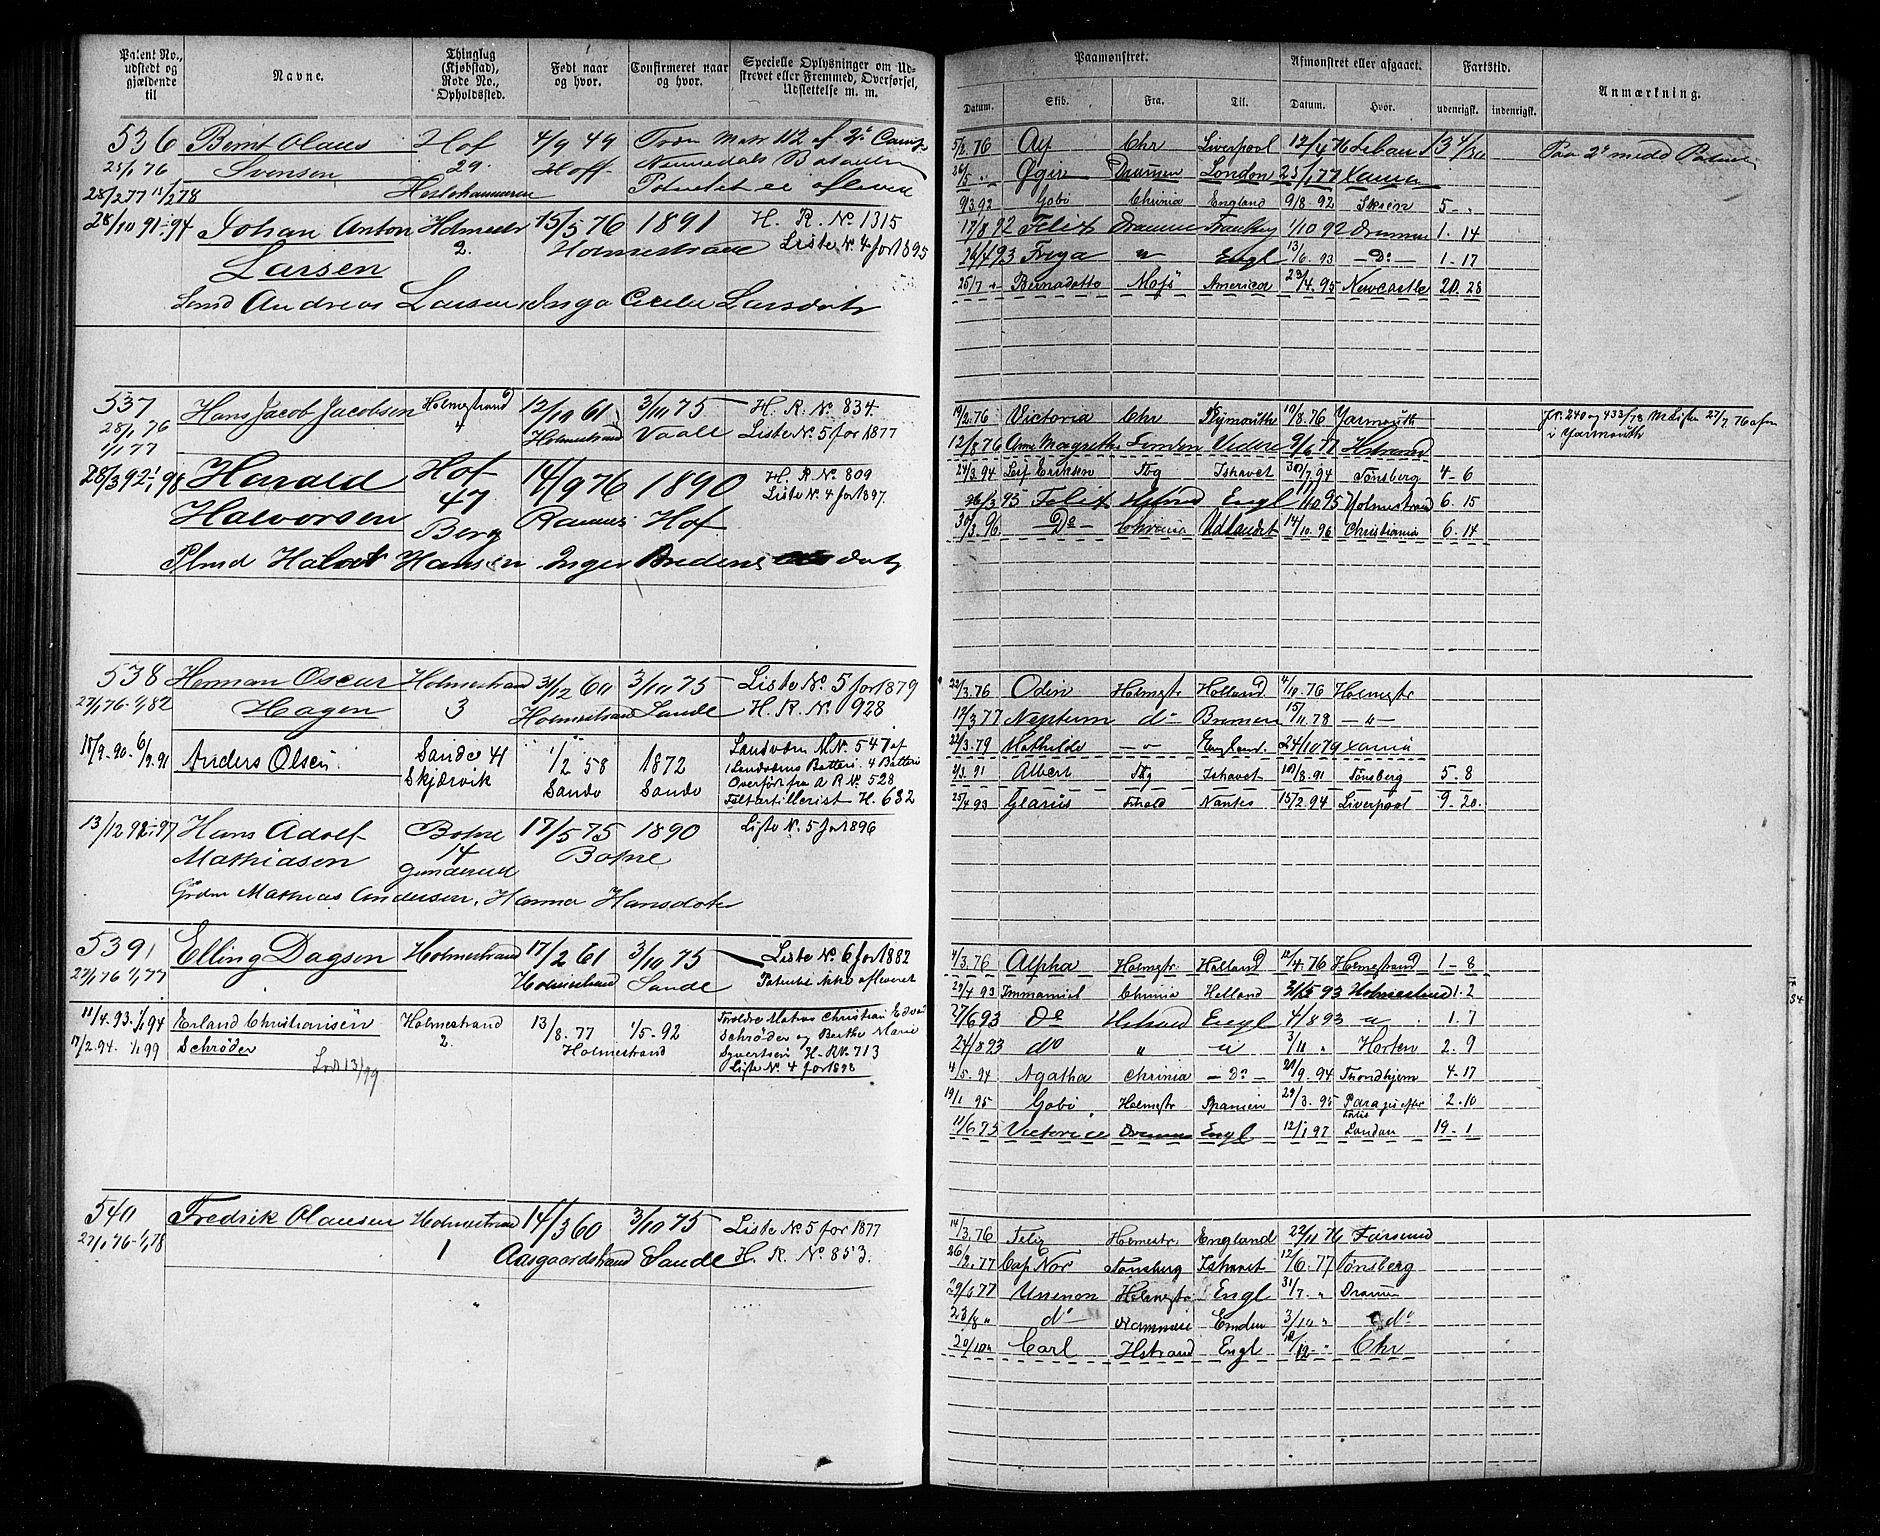 Patent No., udstedt og gjældende til
Navne.
Thinglag (Kjøbstad), Rode No., Opholdssted.
Født naar og hvor.
Confirmeret naar og hvor.
Specielle Oplysninger om Udstrevet eller Fremmed, Overførsel, Udslettelse m. m.
536 Bernt Olaus Hof 4/9 49
25/1 76 Svensen 29. Hoff
28/2 77 1/1 78
28/10 91-94 Johan Anton Holmestr 15/5 76 1891 H. R. No 1315
Larsen 2. Holmestrand Liste No 4 for 1895
Andreas Larsen, Inga Larsdatr
537 Hans Jacob Jacobsen Holmestrand 12/10 61 3/10 75 H. R. No 834.
28/1 76 Holmestrand Vaale Liste No. 5 for 1877
1/1 77
28/3 92 1/1 98 Harald Hof 14/9 76 1890 H. R. No 809
Halvorsen 47 Ramnes Hof Liste No. 4 for 1897.
Berg
Hansen Inger
538 Herman Oscar Holmestrand 31/12 60 3/10 75 Liste No. 5 for 1879
27/1 76-1/1 82 Hagen 3 Holmestrand Sande H. R. No 928
Anders Olsen Sande 41 1/2 58 1872 547 af
Skjærvik Sande Sande 4 Batteri
Overført fra A R No. 528
Feltartillerist H. 632
13/12 92-97 Hans Adolf Botne 17/5 75 1890 Liste No. 5 for 1896
Mathiasen 14 Botne
Gunderud
Mathias Andersen, Hanna Hansdotr
539 Elling Dagsen Holmestrand 17/2 61 3/10 75 Liste No 6 for 1882
27/1 76 1/1 77 Holmestrand Sande Patentet ikke afleveret
11/4. 93. 1/1 94 Erland Christiansen Holmestrand 13/8. 77 1/5-92 Forældre Christian Edvard
17/2. 94. 1/1 99 Schrøder 2. Holmestrand Schrøder og Berthe Marie
Syvertsen H-R No. 713
Liste No. 4 for 1898
540 Fredrik Olausen Holmestrand 14/3 60 3/10 75 Liste No. 5 for 1877
27/1 76-1/1 78 1 Aasgaardstrand Sande H. R. No. 853.
Paamønstret.
Afmønstret eller afgaaet.
Fartstid.
Anmærkning.
Datum. Skib. Fra. Til. Datum. Hvor. udenrigsk. indenrigsk.
Chr Liverpool 12/4 76
Øgir Drammen London 23/1 77
9/3.92 Gobi Chrinia England 9/8 92 Skien 5 - "
17/8 92 Felix Dramme 1/10 92 Drammen 1. 14
Freya " Engl 13/6. 93 - Do - 1-17
25/7 " Bernadotte Mosj America 23/4. 95 Newcastle 20. 28
19/2. 76 Victoria Chr Plymouth 19/8. 76 Yarmouth
i Yarmouth
12/8 76 Anne Magrethe London 9/6 77
24/3. 94 Leif Eriksen Tbg Ishavet 30/7. 94 Tønsberg 4-6
26/3 95 Felix Engl 1/10 95 Holmestrand 6. 15
30/3. 96 Do Chrania Udlandet 14/10. 96 Christiania 6. 14
22/3. 76 Odin Holmestr Holland 4/10. 76 Holmestr
12/3 77 Neptun do Bremen 15/11. 78 - " -
22/3. 79 Mathilde - " - England. 24/10 79
2/3. 91 Albert Tbg Ishavet 10/8. 91 Tønsberg 5. 8
25/4 93 Glarus Nantes 15/2. 94 Liverpool 9-20.
4/3. 76 Alpha Holmestr. Holland 12/4. 76 Holmestrand 1-8
29/4 93 Immanuel Chrinia Holland 93 Holmestrand 1. 2
27/6 93 Do Hstrand Engl 4/8 93 " 1. 7
24/8 93 do " " 3/11 " Horten 2. 9
4/5. 94 Agatha Chrinia - Do - 20/9. 94 Trondhjem 4-17
19/1 95 Gobi Holmestr Spanien 29/3. 95 2. 10
11/6 95 Victoria Dramme Engl 12/1 97 London 19-1
14/3. 76 Felix Holmestr. England 22/11 76 Farsund
26/2. 77 Cap Nor Tønsberg Ishavet 12/6. 77 Tønsberg
29/6 77 Unionon Holmestr Engl 31/7. " Dramn
23/8 " do Emden 3/10 " do
20/10 " Carl Hstrand Engl 18/12 " Chr